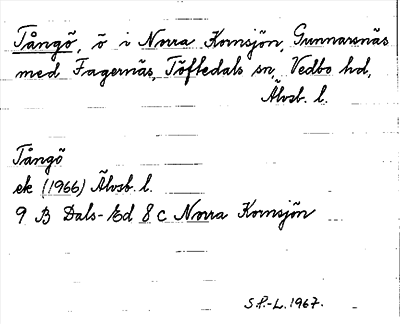 Tångö, ö i Norra Kornsjön, Gunnarsnäs
med Fagernäs, Töftedals sn, Vedbo hd,
Älvsb. l.
Tångö
ek (1966) Älvsb. l.
9 B Dals-Ed 8 c Norra Kornsjön
S.P.-L. 1967.